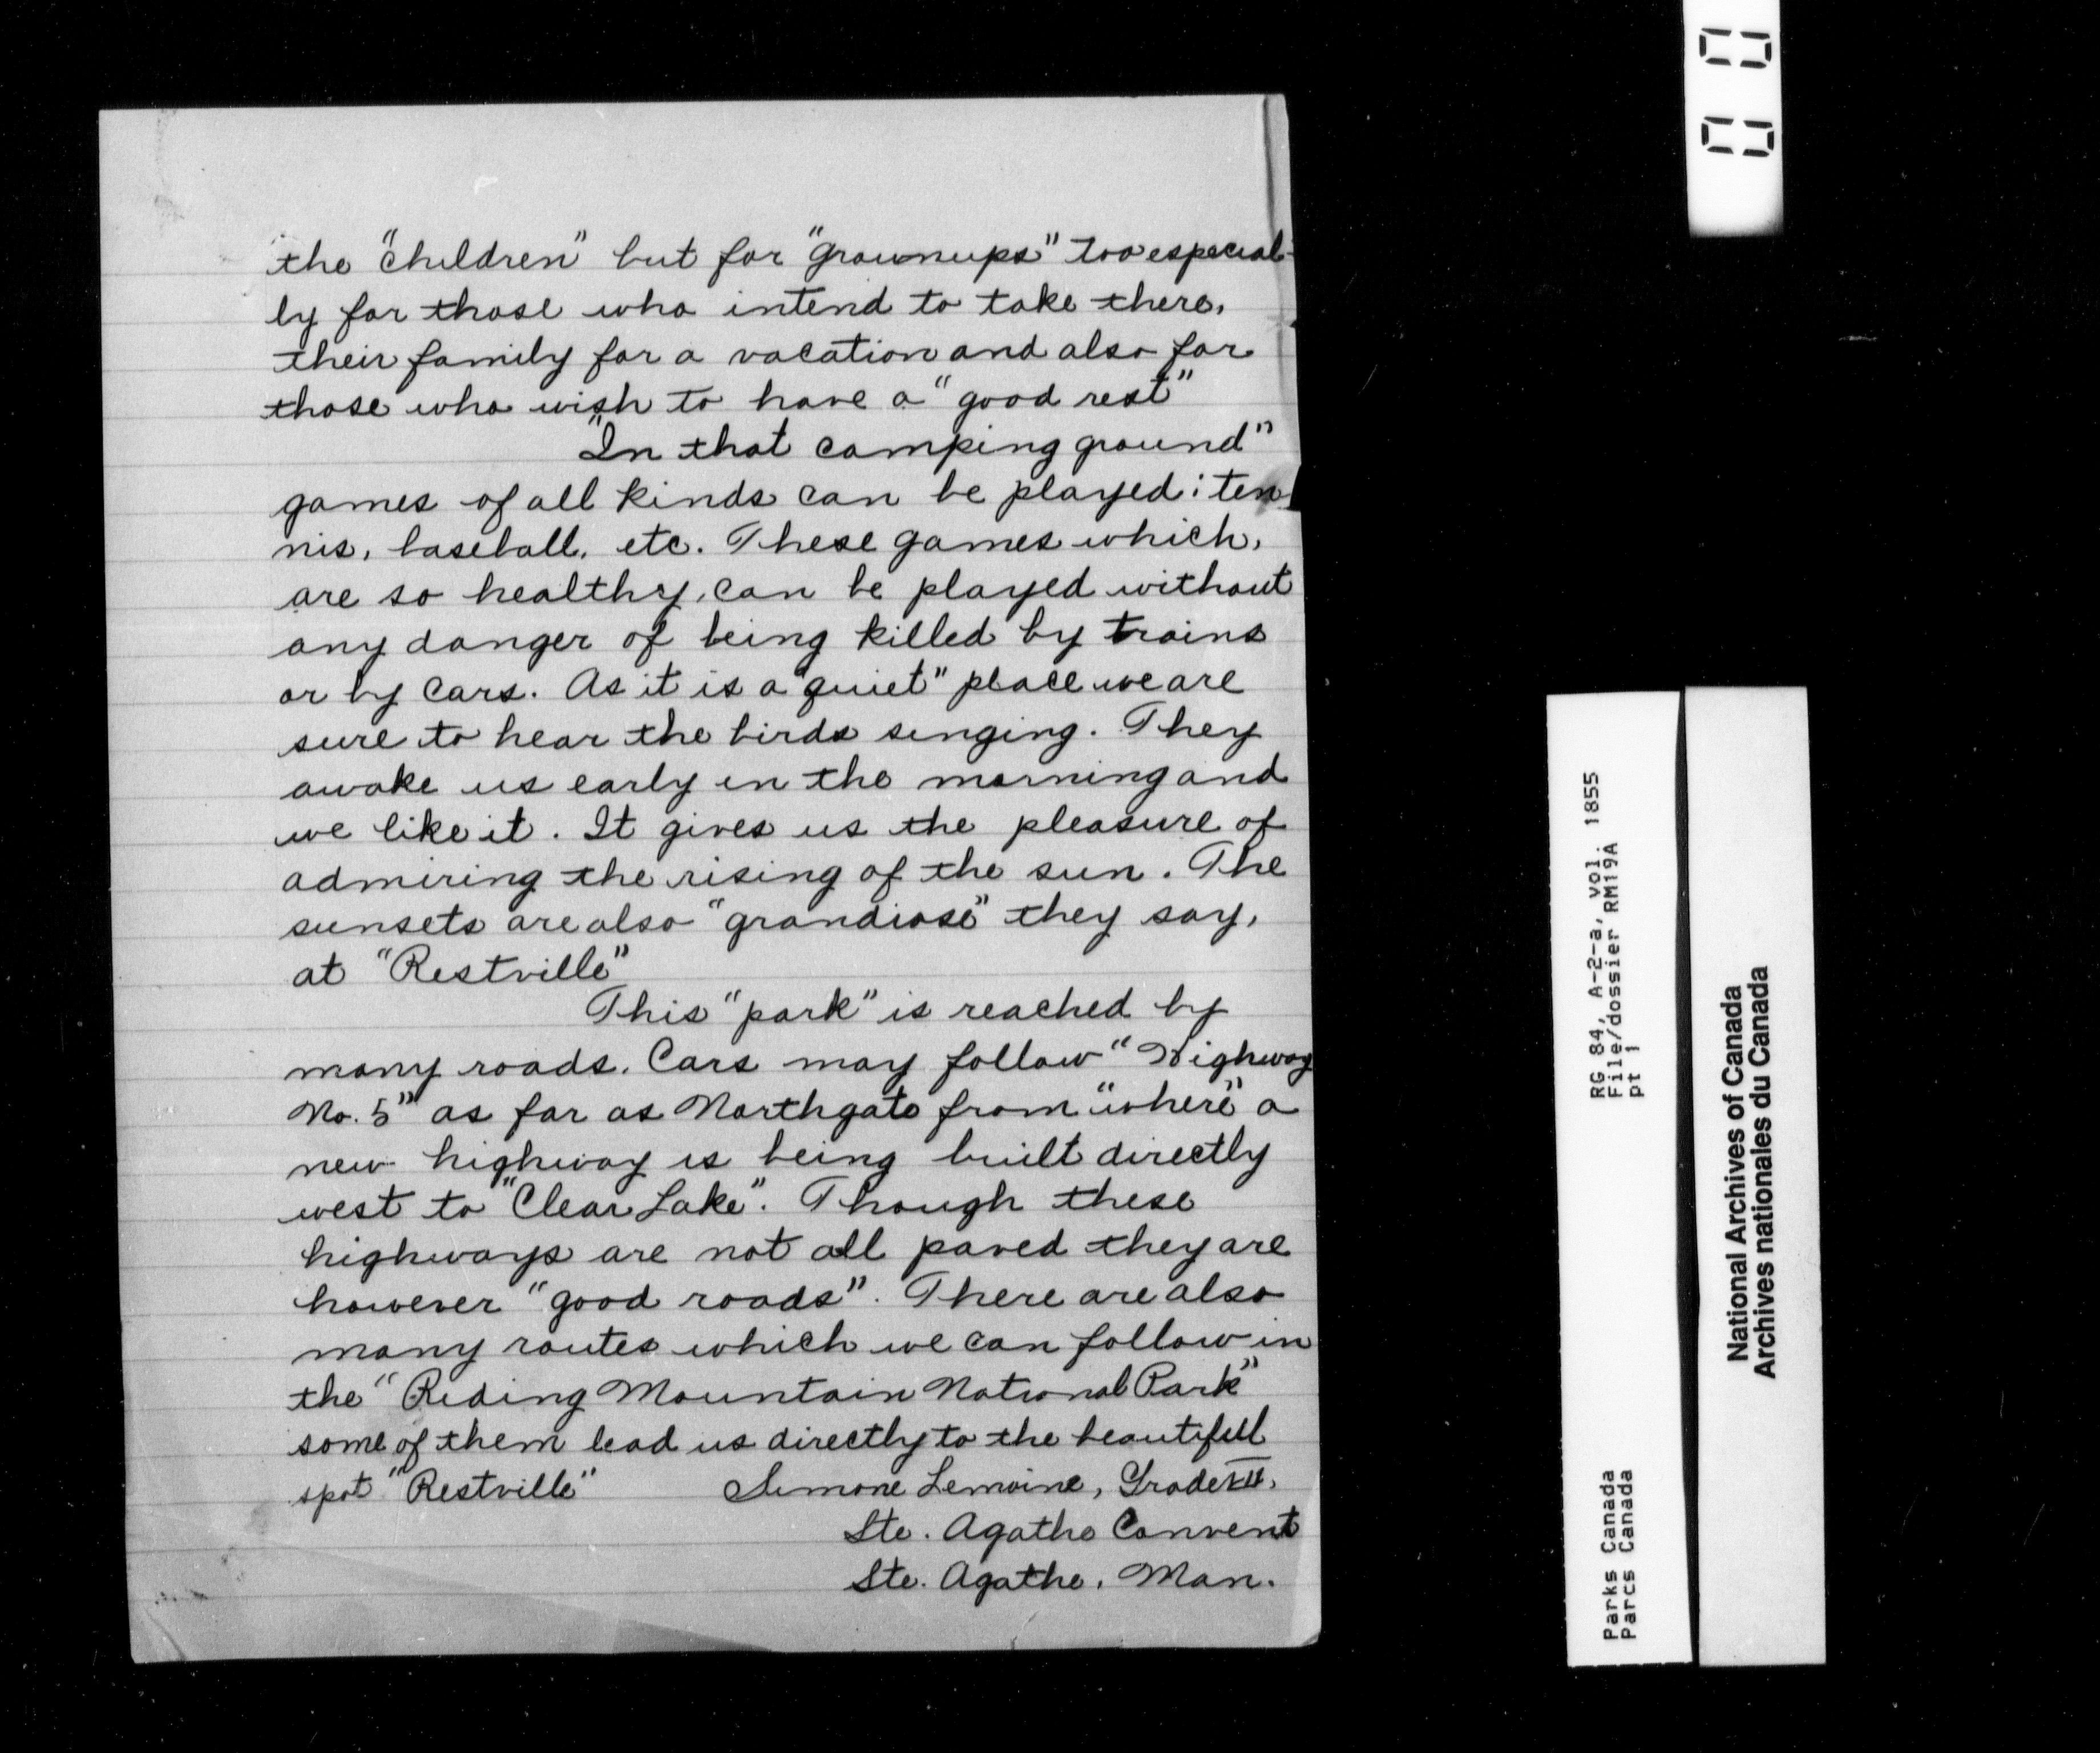 the "children" but for "grownups" too especial-
ly for those who intend to take there,
their family for a vacation and also for
those who wish to have a "good rest"
"In that camping ground"
games of all kinds can be played: ten
nis, baseball, etc. These games which,
are so healthy, can be played without
any danger of being killed by trains
or by cars. As it is a "quiet" place we are
sure to hear the birds singing. They
awake us early in the morning and
we like it. It gives us the pleasure of
admiring the rising of the sun. The
sunsets are also "grandiose" they say,
at "Restville"
This "park" is reached by
many roads. Cars may follow "Highway
No. 5" as far as Northgate from "where" a
new highway is being built directly
west to "Clear Lake". Though these
highways are not all paved they are
however "good roads". There are also
many routes which we can follow in
the "Riding Mountain National Park"
some of them lead us directly to the beautifull
spot "Restville"
Simone Lemoine, Grade VII.
Ste. Agathe Convent
Ste. Agathe, Man.
RG 84, A-2-a, vol. 1855
File/dossier RM19A
pt 1
Parks Canada
Parcs Canada
National Archives of Canada
Archives nationales du Canada